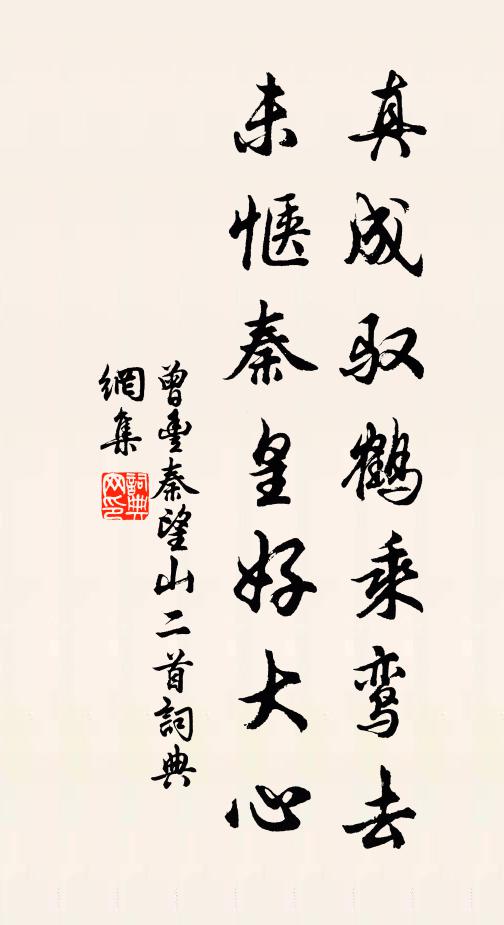 真成驭鹤乘鸾去
未惬秦皇好大心
曾豊秦望山二首詞典
網集
詞典
网印